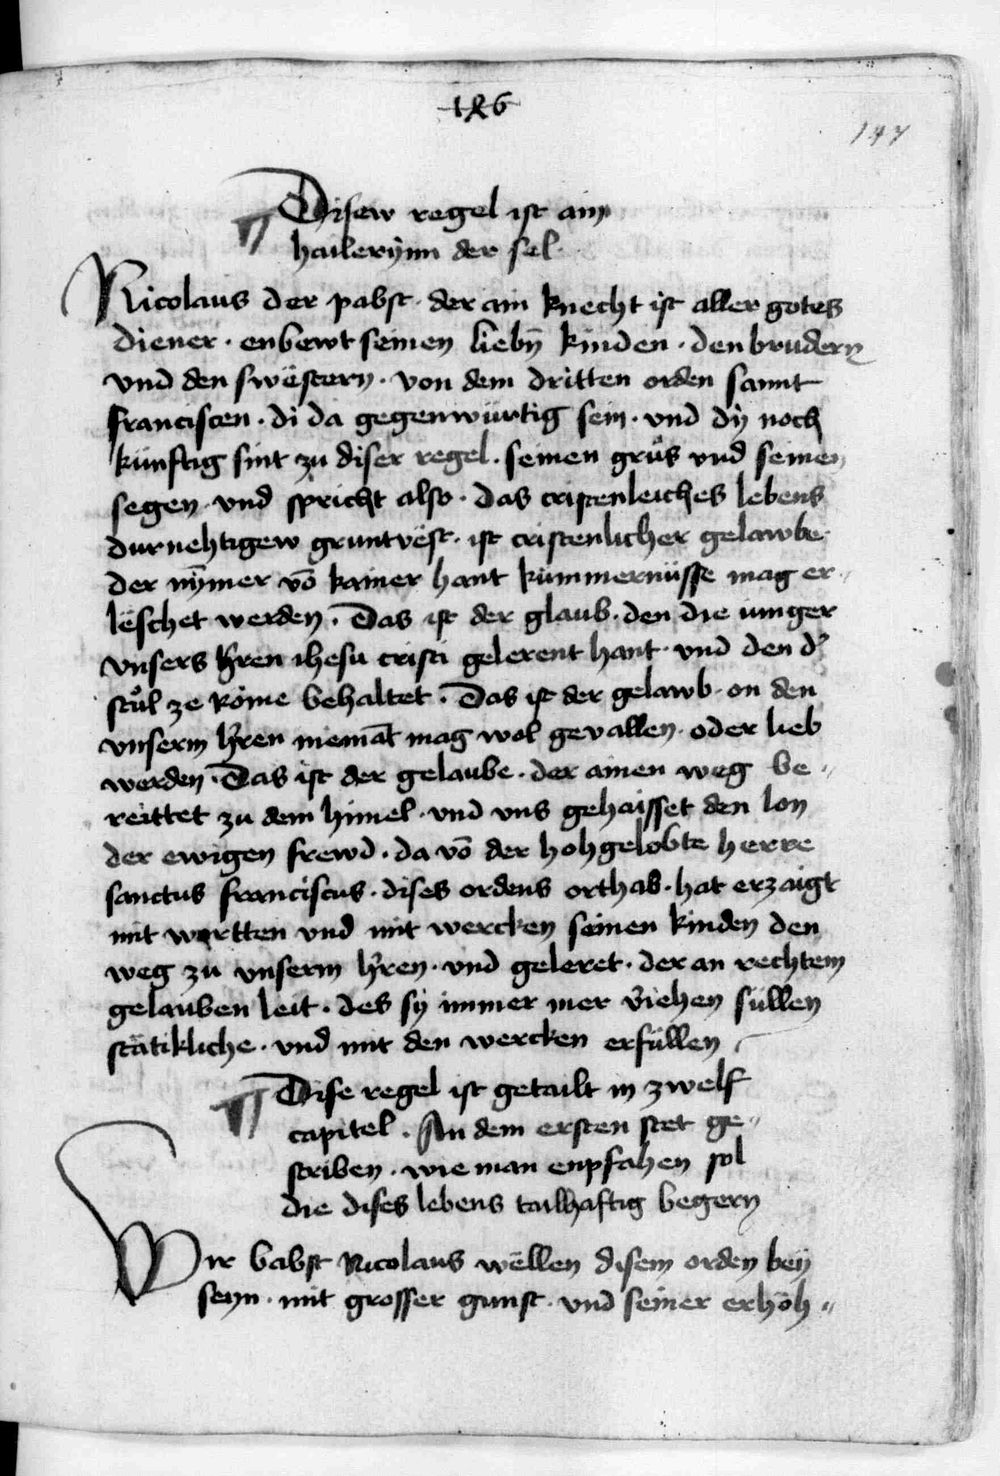 186
147
¶ Disew regel ist ain
hailerÿnn der sel
Nicolaus der pabst · der ain knecht ist aller gotes
diener · enbewt seinen liebn̄ kinden · den brudern
vnd den swëstern · von dem dritten orden sannt
francisten · di da gegenwürtig sein · vnd dÿ noch
künftig sint zu diser regel · seinen grůs vnd seinen
segen · vnd spricht also · Das cristenleiches lebens
durnehtigew gruntvëst · ist cristenlicher gelawbe
der nÿmer vō kainer hant kümmernüsse mag er〃
lëschet werden · Das ist der glaub · den die iunger
vnsers h̄ren ihesu cristi gelerent hant · vnd den d᾽
stůl ze Röme behaltet · Das ist der gelawb · on den
vnserm h̄ren niemāt mag wol gevallen · oder lieb
werden · Das ist der gelaube · der ainen weg be〃
reittet zu dem himel · vnd vns gehaisset den lon
der ewigen frewd · da vō der hohgelobte herre
sanctus franciscus · dises ordens orthab · hat erzaigt
mit wortten vnd mit wercken seinen kinden den
weg zu vnserm h̄ren · vnd geleret · der an rechtem
gelauben leit · des sÿ immer mer v̄iehen süllen
stätikliche · vnd mit den wercken erfüllen
¶ Dise regel ist getailt in zwelf
capitel · An dem ersten stet ge〃
scriben · wie man enpfahen sol
die dises lebens tailhaftig begern
Wir babst Nicolaus wëllen disem orden beÿ
seyn · mit grosser gunst · vnd seiner erhöh〃